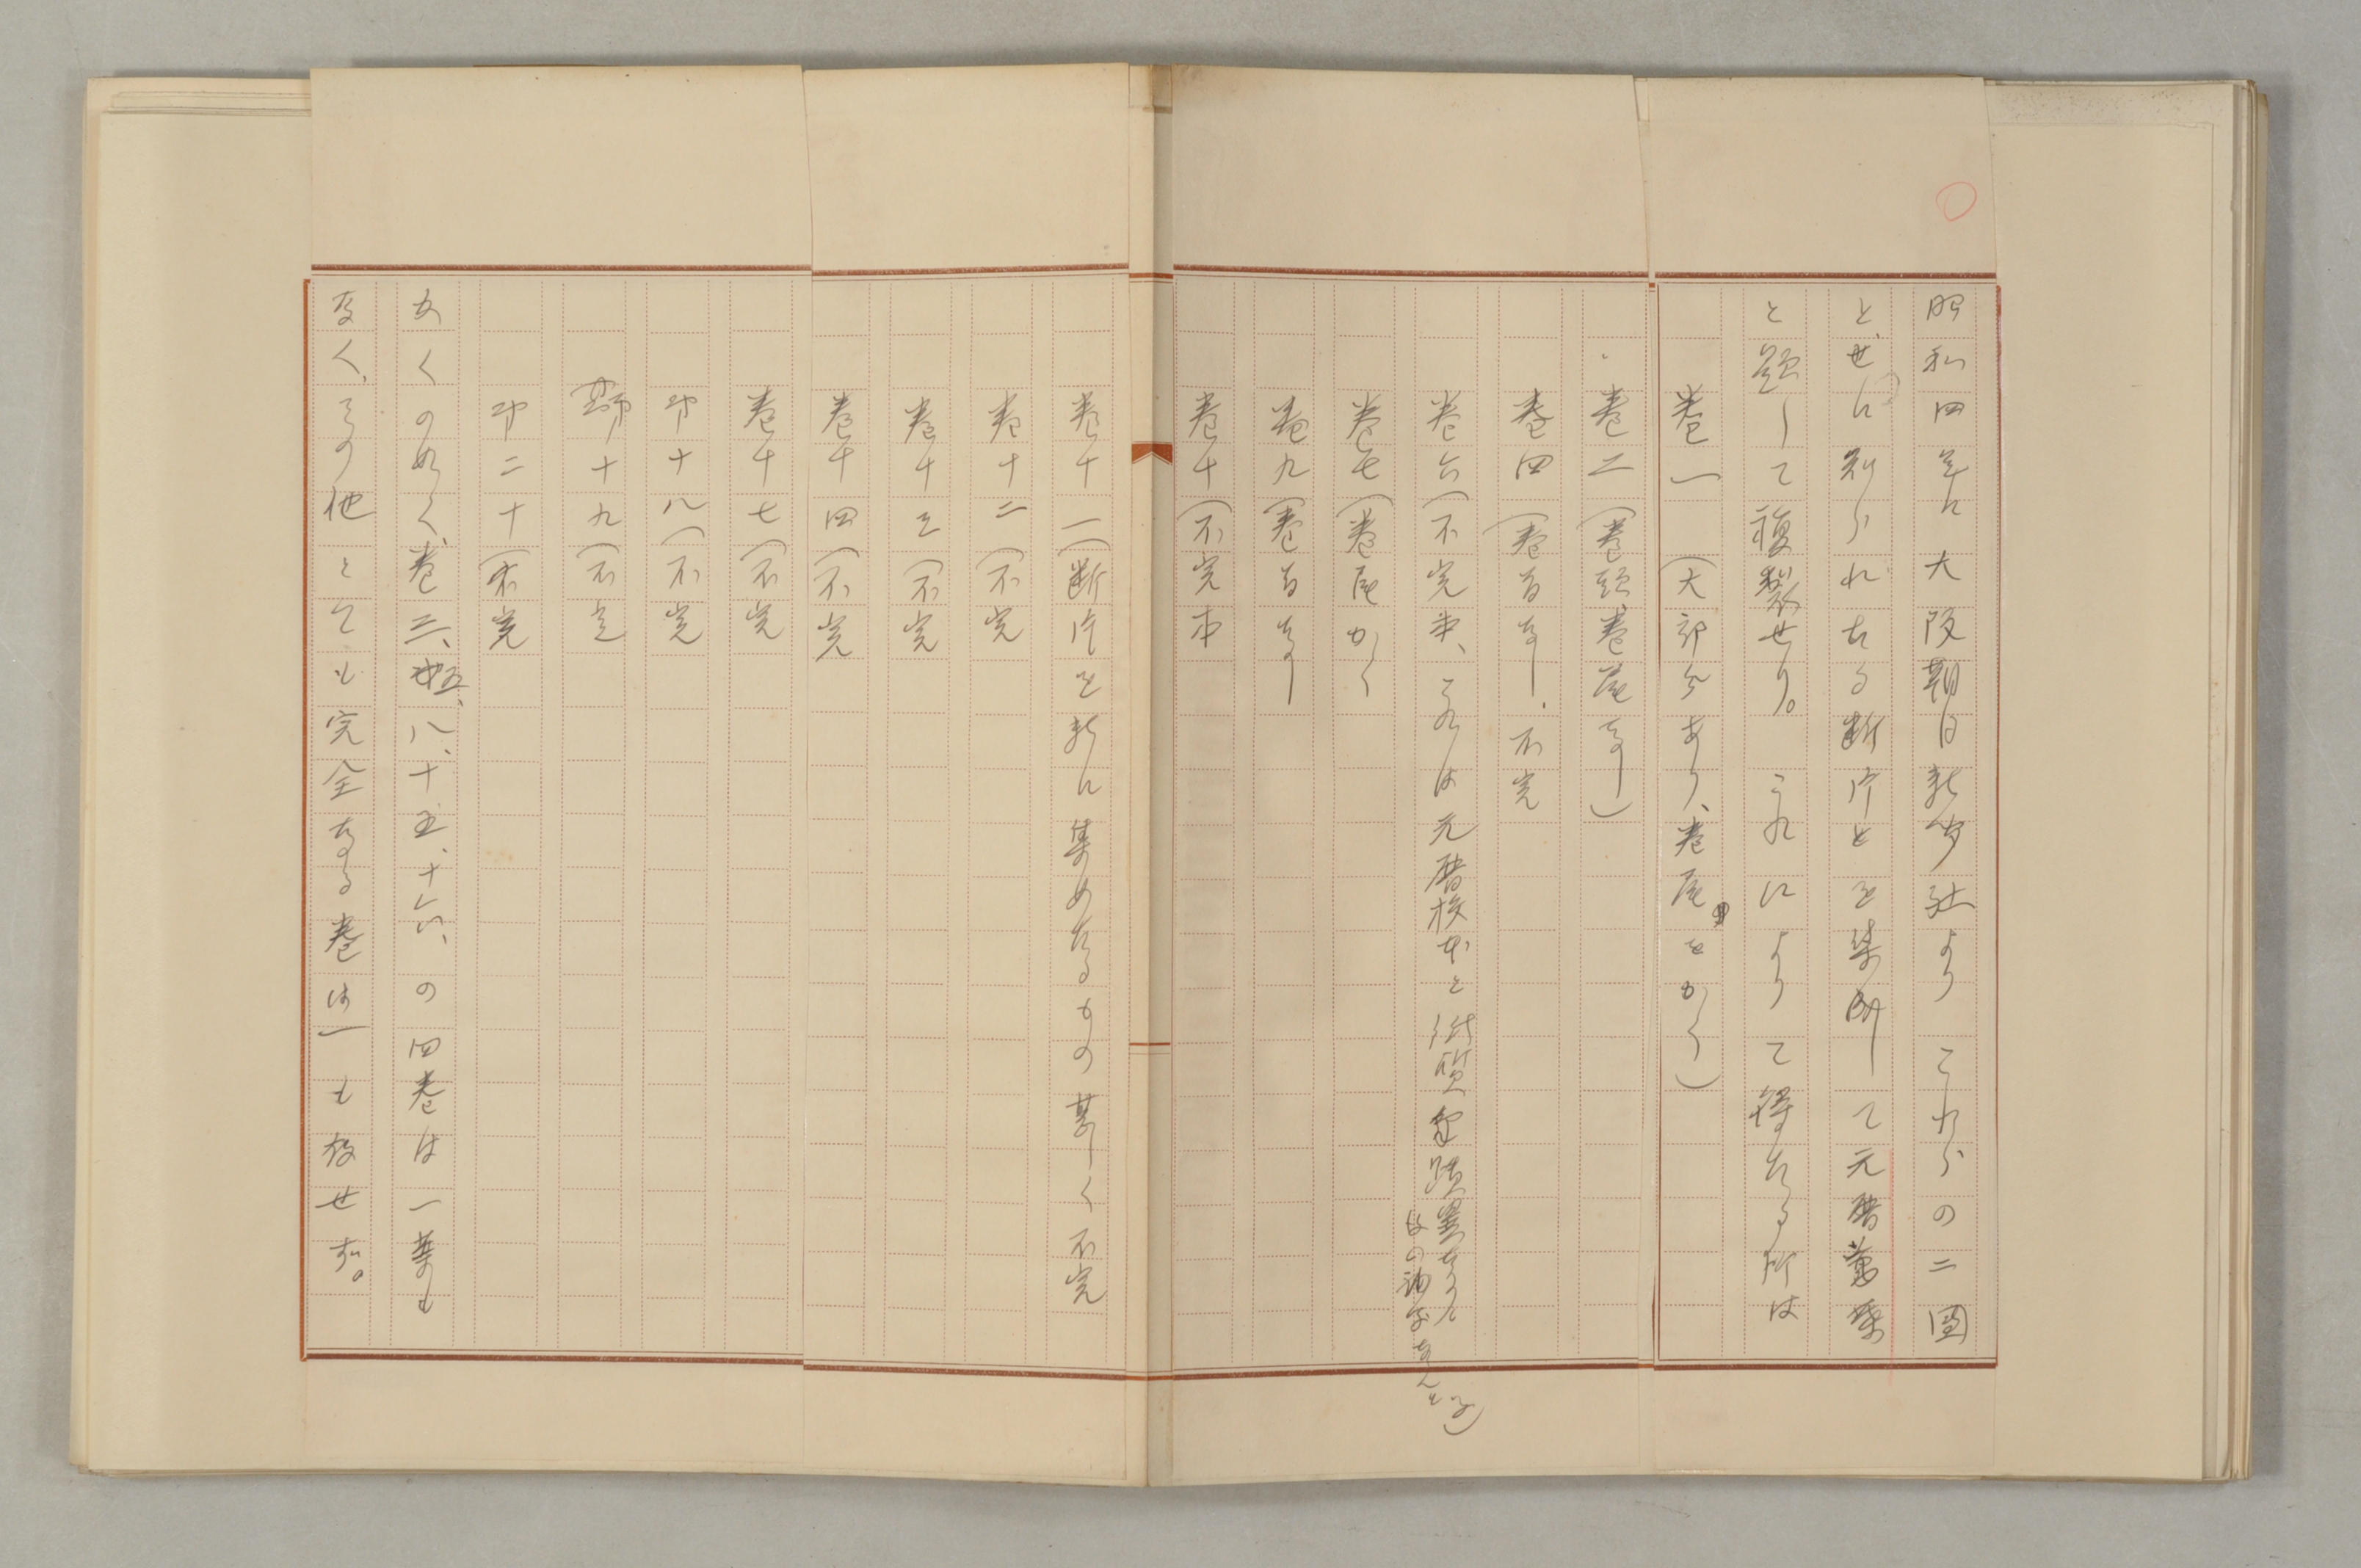 昭和四年に大阪朝日新聞社よりこれらの二図
と、世に知られたる断片とを集成して元暦萬葉
と題して複製せり。これによりて得たる所は
巻一（大部分あり、巻尾をかく）
巻二（巻頭巻尾なし）
巻四（巻首なし．不完
巻六（不完本、これは元暦校本と
巻七（巻尾かく
巻九（巻首なし
巻十（不完本
巻十一（断片を新に集めたるもの甚しく不完
巻十二（不完
巻十三（不完
巻十四（不完
巻十七（不完
巻十八（不完
巻十九（不完
巻二十（不完
かくのごとく、巻三、五、八、十五、十六、の四巻は一葉も
なく、その他とても完全なる巻は一も存せず。